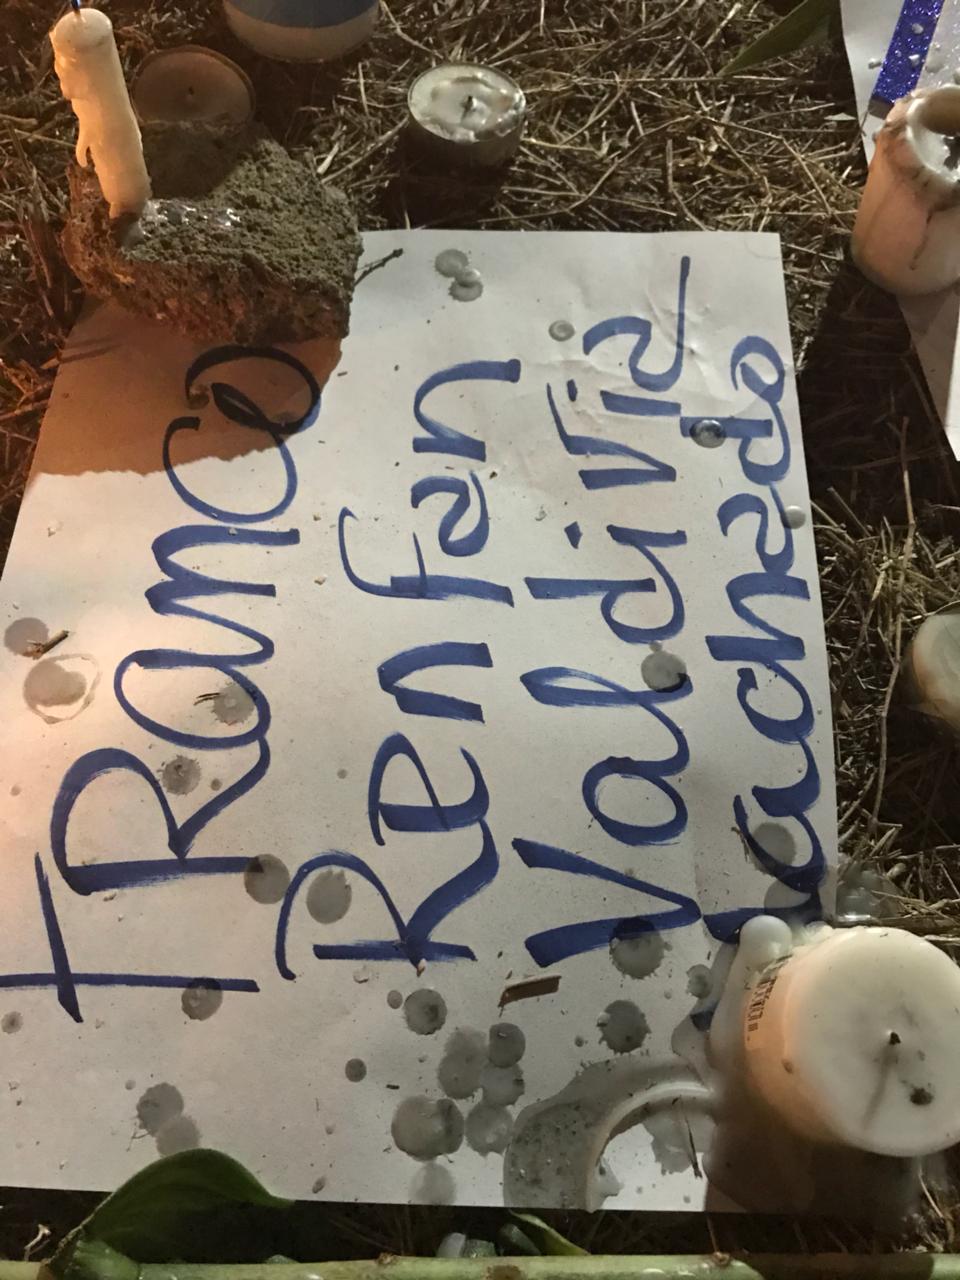 FRanco
Renfan
Valdivia
Machado